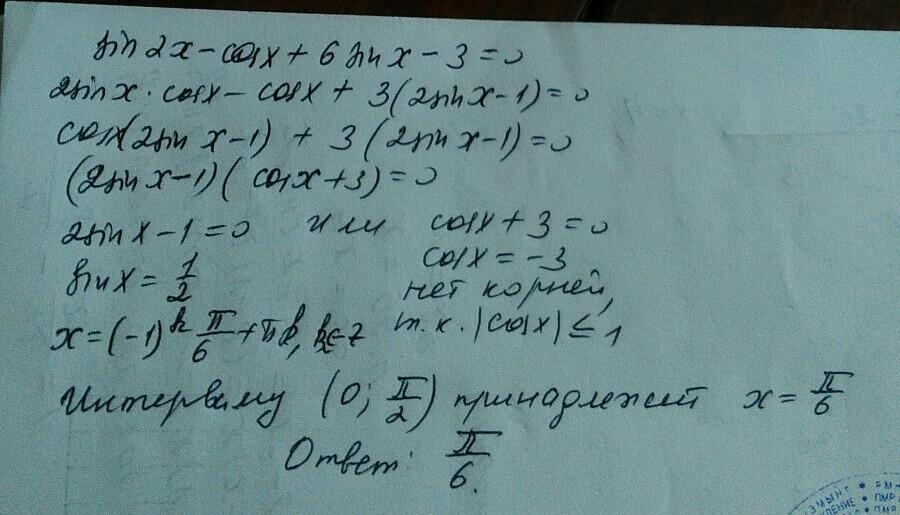 sin 2x − cos x + 6 sin x − 3 = 0
2 sin x · cos x − cos x + 3(2 sin x − 1) = 0
cos x(2 sin x − 1) + 3(2 sin x − 1) = 0
(2 sin x − 1)(cos x + 3) = 0
2 sin x − 1 = 0 или cos x + 3 = 0
sin x = 1/2 cos x = −3
нет корней,
x = (−1)^k π/6 + πk, k ∈ Z т.к. |cos x| ≤ 1
Интервалу (0; π/2) принадлежит x = π/6
Ответ: π/6.